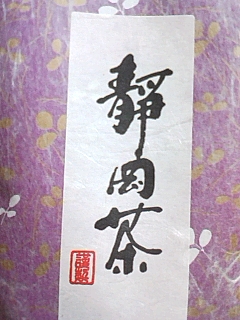 靜岡茶
謹製